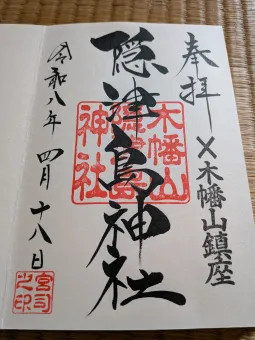 奉拝
木幡山鎮座
隠津島神社
木幡山
隠津島
神社
令和八年 四月 十八日
宮司
之印